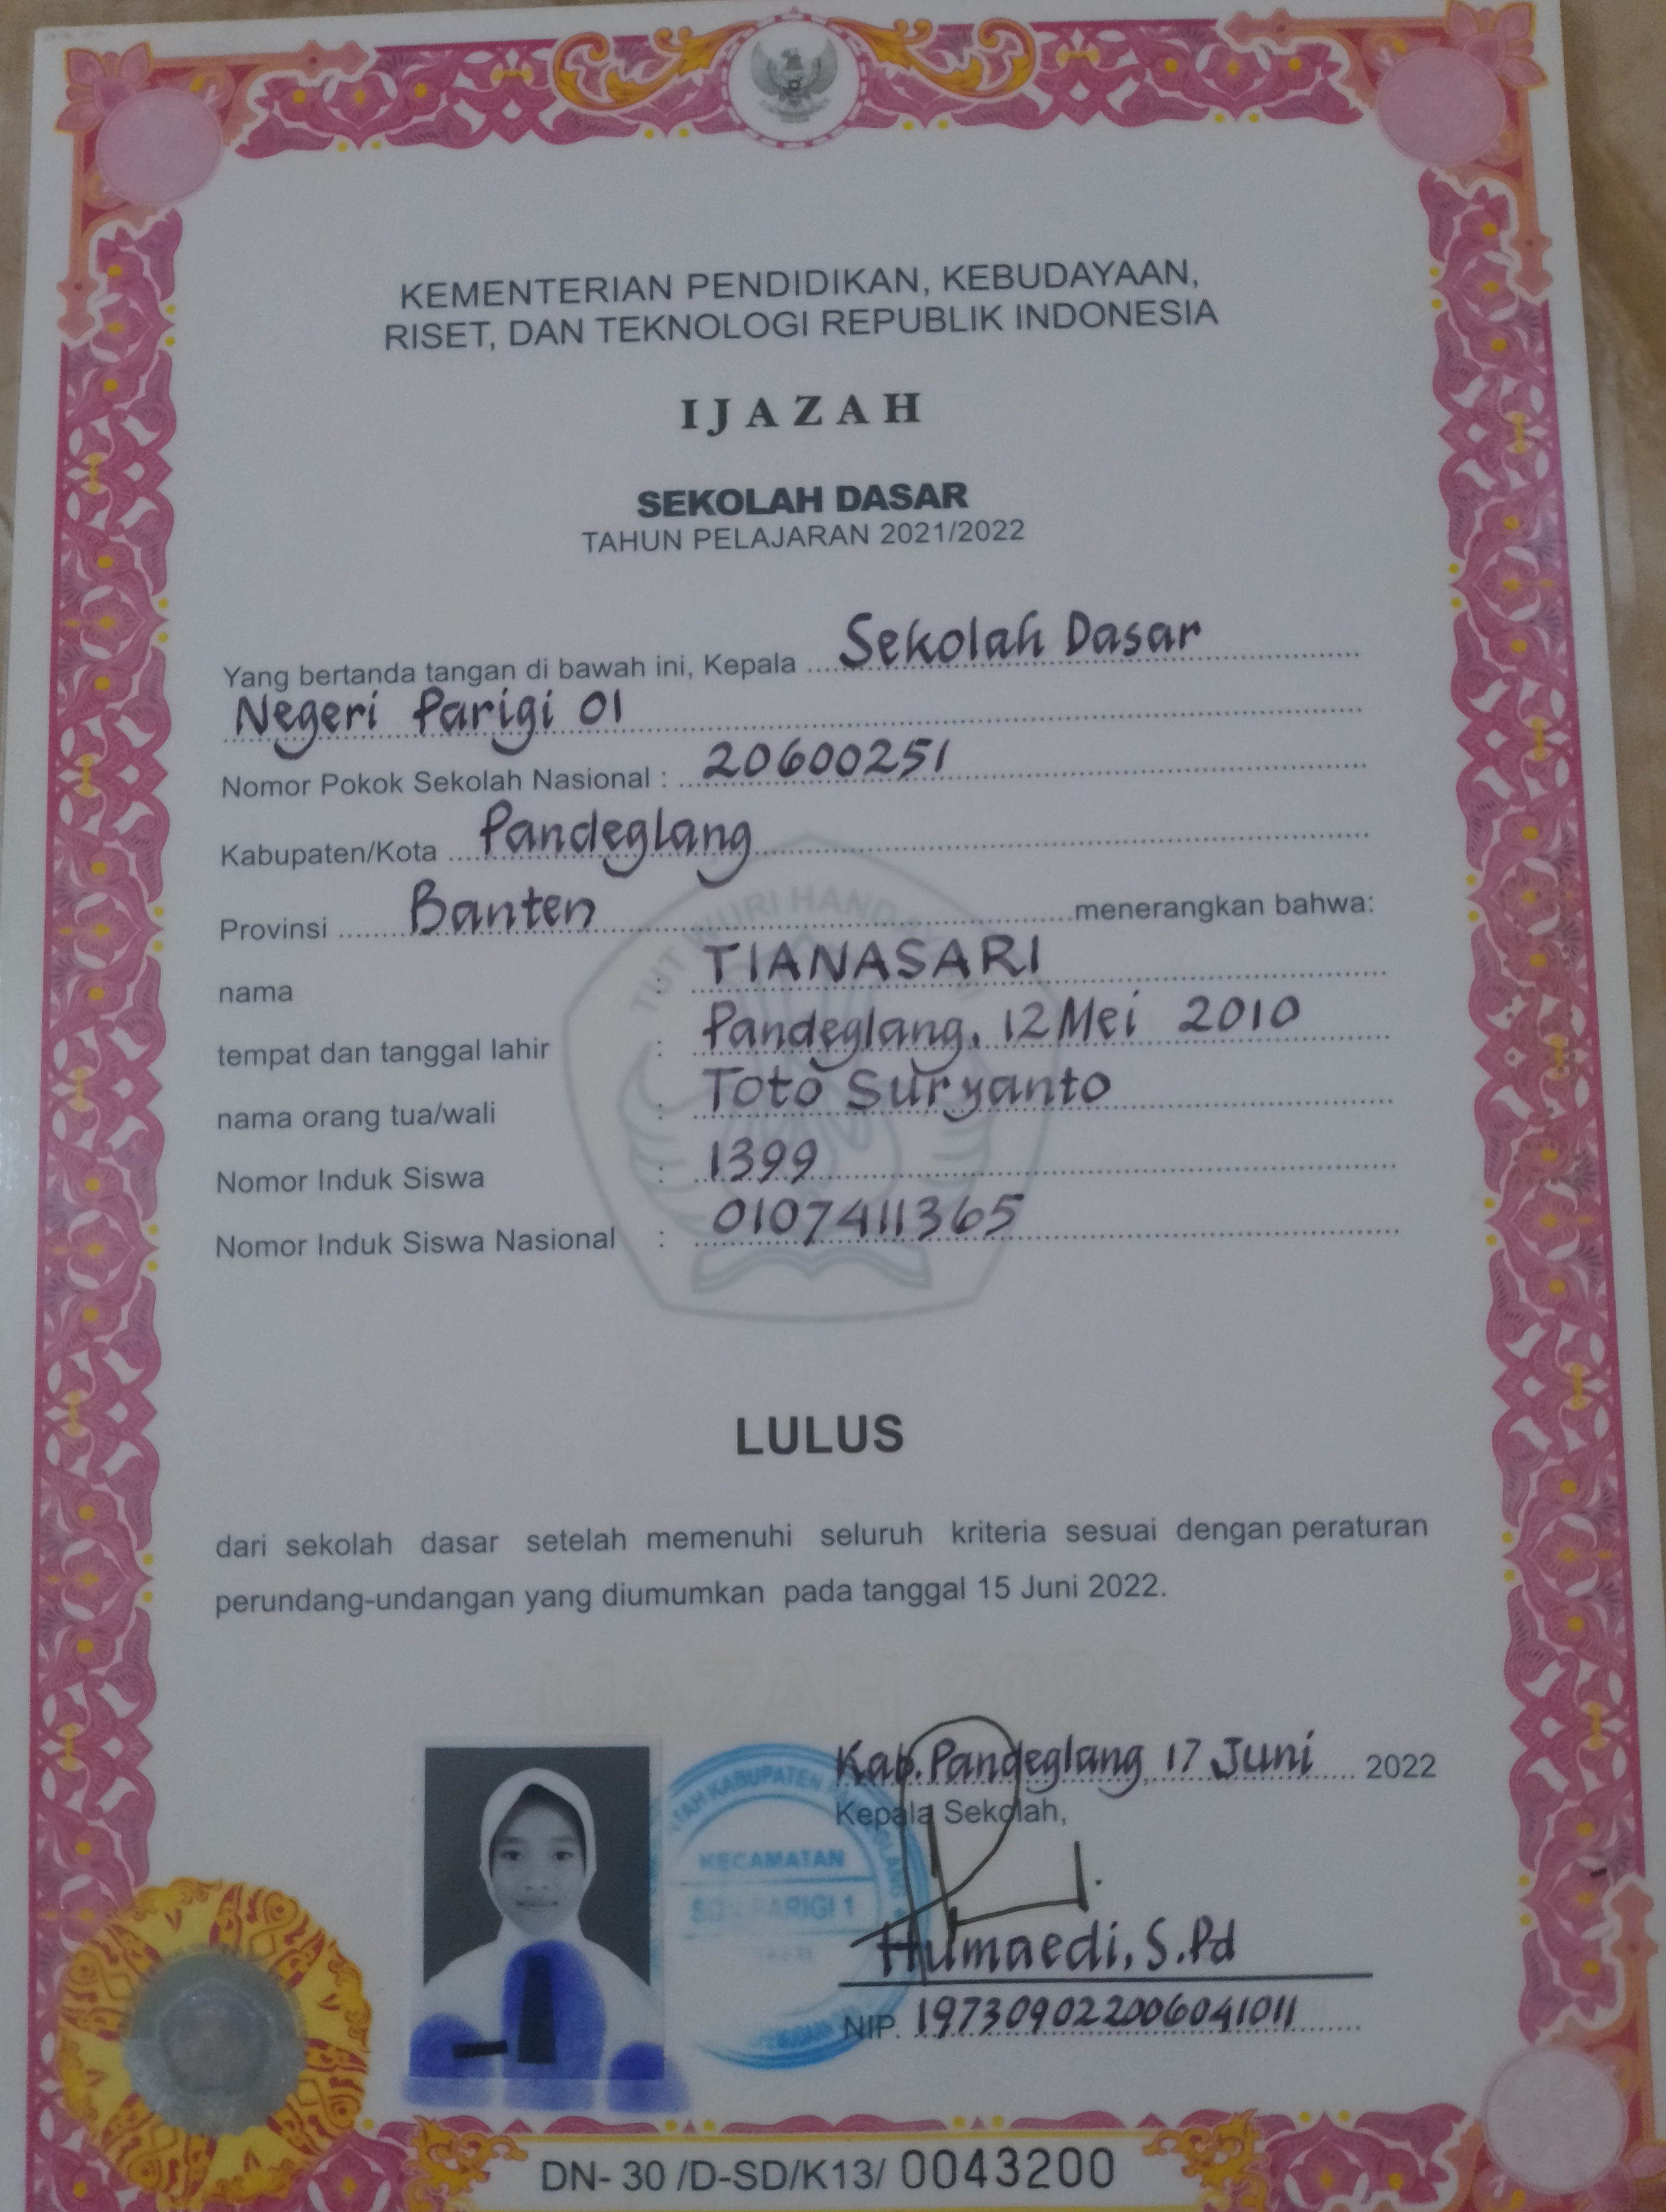 KEMENTERIAN PENDIDIKAN, KEBUDAYAAN,
RISET, DAN TEKNOLOGI REPUBLIK INDONESIA
IJAZAH
SEKOLAH DASAR
TAHUN PELAJARAN 2021/2022
Yang bertanda tangan di bawah ini, Kepala Sekolah Dasar
Negeri Parigi 01
Nomor Pokok Sekolah Nasional : 20600251
Kabupaten/Kota Pandeglang
Provinsi Banten menerangkan bahwa:
nama : TIANASARI
tempat dan tanggal lahir : Pandeglang, 12 Mei 2010
nama orang tua/wali : Toto Suryanto
Nomor Induk Siswa : 1399
Nomor Induk Siswa Nasional : 0107411365
TUT WURI
LULUS
dari sekolah dasar setelah memenuhi seluruh kriteria sesuai dengan peraturan
perundang-undangan yang diumumkan pada tanggal 15 Juni 2022.
Kab. Pandeglang, 17 Juni 2022
Kepala Sekolah,
KABUPATEN
KECAMATAN
SDN PARIGI 1
Humaedi, S.Pd
NIP. 197309022006041011
DN- 30 /D-SD/K13/ 0043200